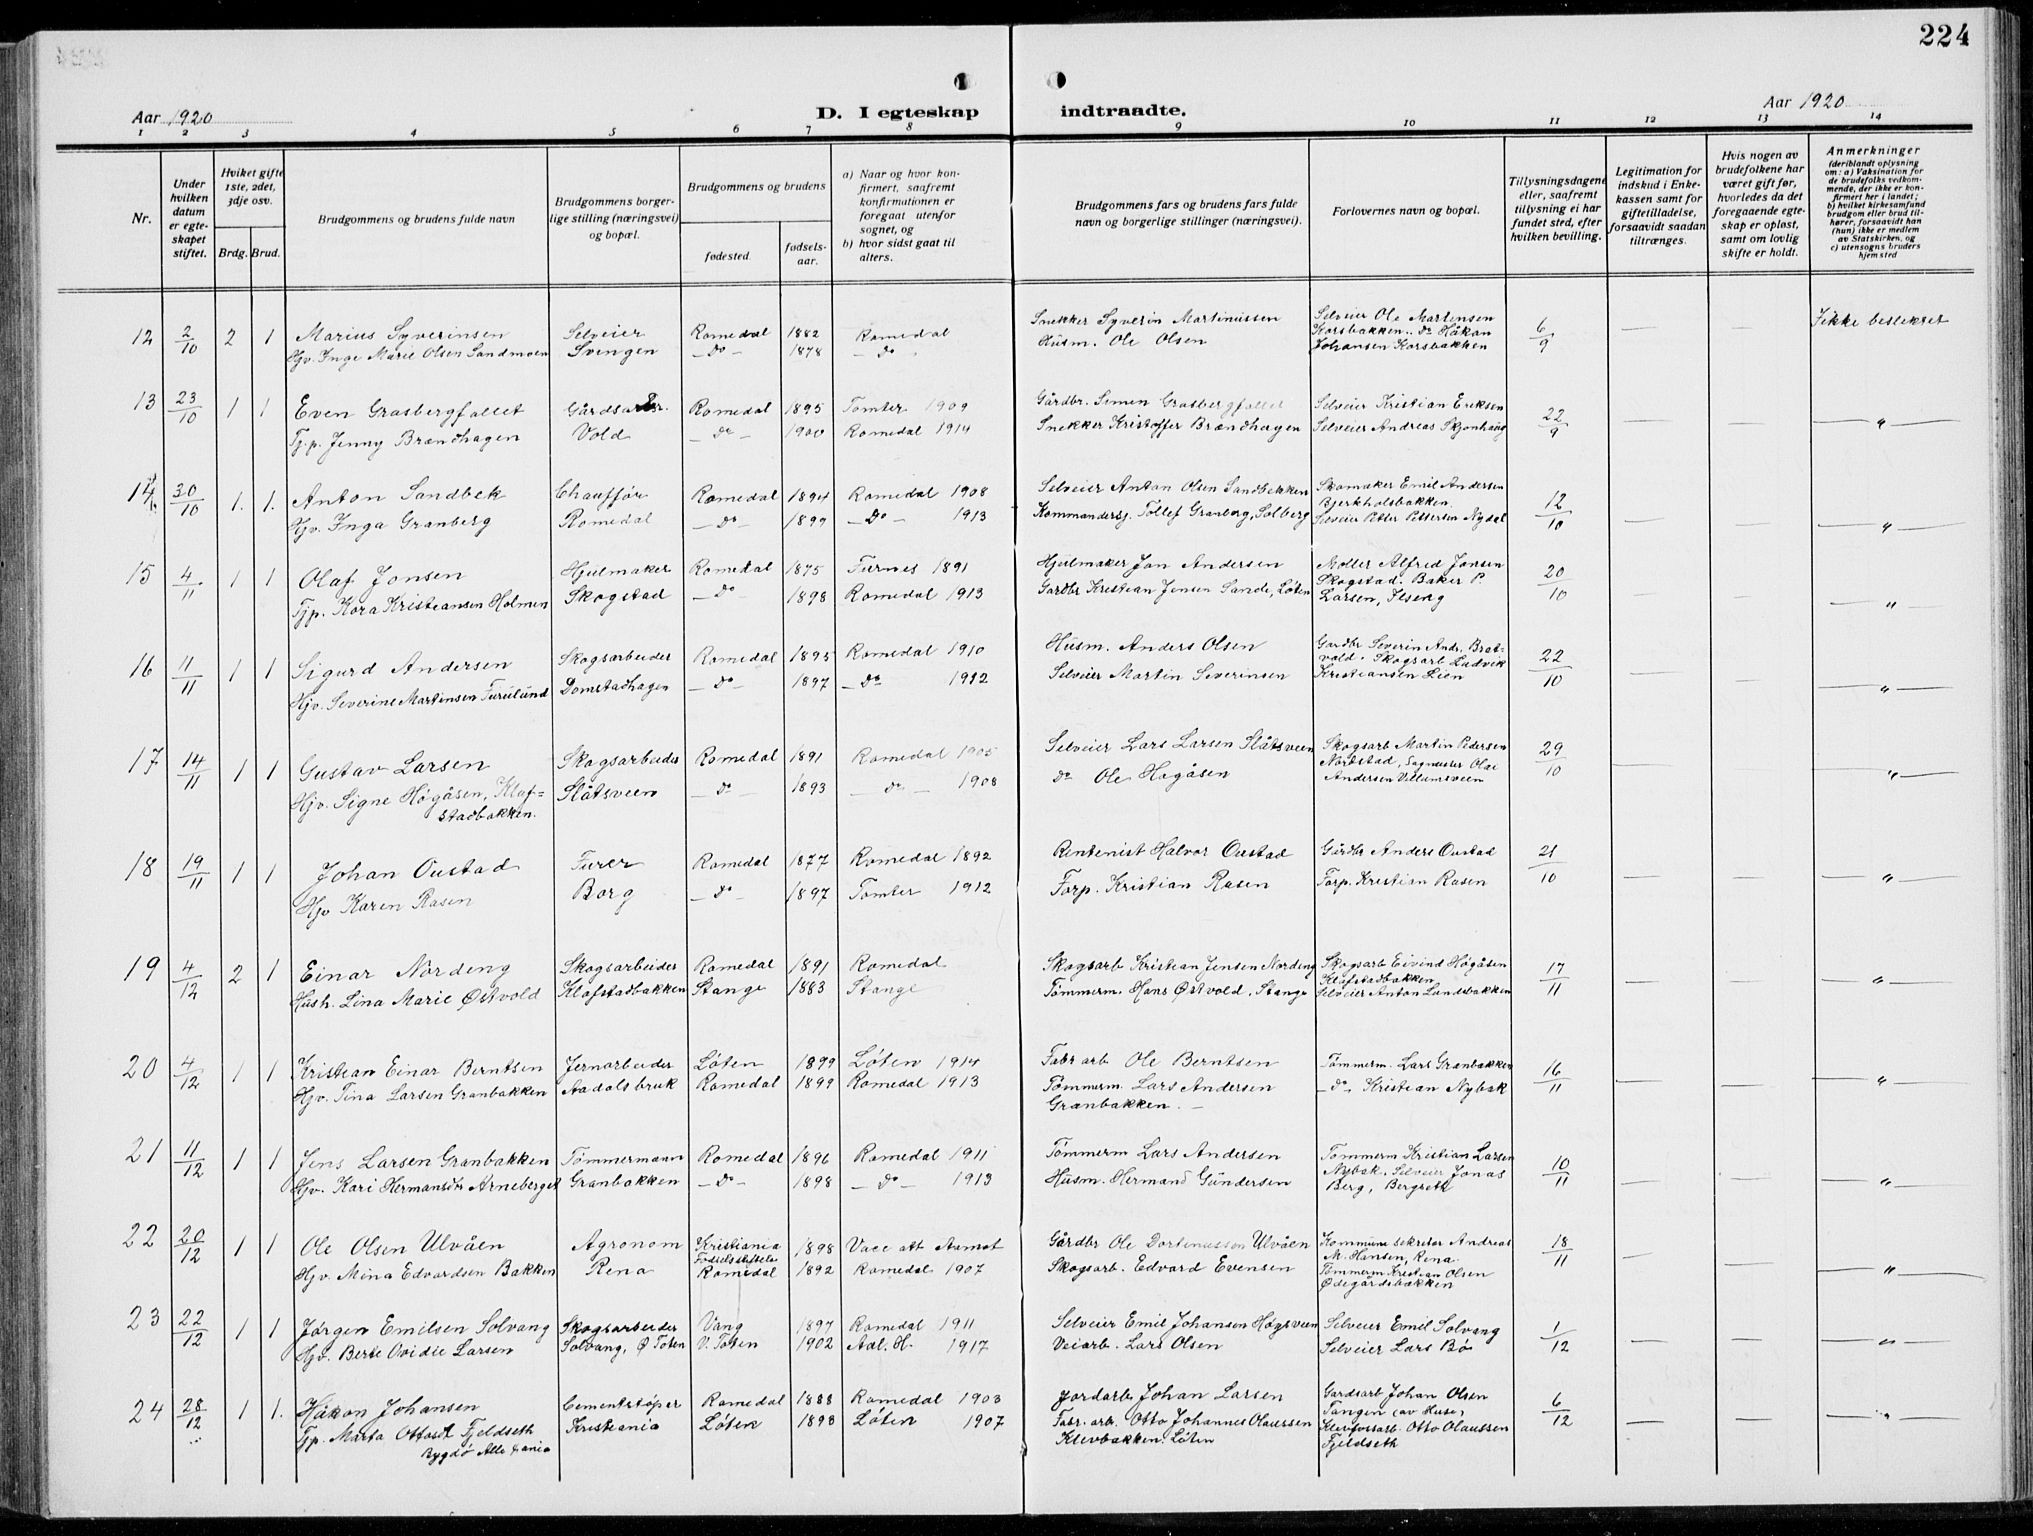 224
Aar 1920
D. I egteskap indtraadte.
Aar 1920
1 2 3 4 5 6 7 8 9 10 11 12 13 14
Nr.
Under hvilken datum er egte-skapet stiftet.
Hviket gifte 1ste, 2det, 3dje osv.
Brdg. Brud.
Brudgommens og brudens fulde navn
Brudgommens borger-lige stilling (næringsvei) og bopæl.
Brudgommens og brudens
fødested.
fødsels-aar.
a) Naar og hvor kon-firmert, saafremt konfirmationen er foregaat utenfor sognet, og
b) hvor sidst gaat til alters.
Brudgommens fars og brudens fars fulde navn og borgerlige stillinger (næringsvei).
Forlovernes navn og bopæl.
Tillysningsdagene eller, saafremt tillysning ei har fundet sted, efter hvilken bevilling.
Legitimation for indskud i Enke-kassen samt for giftetilladelse, forsaavidt saadan tiltrænges.
Hvis nogen av brudefolkene har været gift før, hvorledes da det foregaaende egte-skap er opløst, samt om lovlig skifte er holdt.
Anmerkninger
(deriblandt oplysning om: a) Vaksination for de brudefolks vedkom-mende, der ikke er kon-firmert her i landet; b) hvilket kirkesamfund brudgom eller brud til-hører, forsaavidt han (hun) ikke er medlem av Statskirken, og c) utensogns bruders hjemsted
12 2/10 2 1 Marius Syverinsen Selveier Romedal 1882 Romedal Snekker Syverin Martinussen Selveier Ole Martensen 6/9 — Ikke beslektet
Hjv. Inge Marie Olsen Sandmoen Svingen — Do — 1878 — Do — Husm. Ole Olsen Korsbakken. Do Håkon
Johansen Korsbakken
13 23/10 1 1 Even Grasbergfallet Gårdsarbr. Romedal 1895 Tomter 1909 Gårdbr. Simen Grasbergfallet Selveier Kristian Eriksen 22/9 — — — " —
Tj.p. Jenny Brændhagen Vold — Do — 1900 Romedal 1914 Snekker Kristoffer Brændhagen Selveier Andreas Skjønhaug
14 30/10 1. 1. Anton Sandbek Chauffør Romedal 1894 Romedal 1908 Selveier Anton Olsen Sandbekken Skomaker Emil Andersen 12/10 — — " —
Hjv. Inga Granberg Romedal — Do — 1899 — Do — 1913 Kommandersj. Tollef Granberg, Solberg Bjerkholsbakken.
Selveier Petter Pettersen Nydal
15 4/11 1 1 Olaf Jonsen Hjulmaker Romedal 1875 Furnes 1891 Hjulmaker Jon Andersen Møller Alfred Jonsen 20/10 — — — " —
Tjp. Kora Kristiansen Holmen Skogstad — Do — 1898 Romedal 1913 Gardbr Kristian Jensen Sande, Løten Skogstad. Baker P.
Larsen, Ilseng
16 11/11 1 1 Sigurd Andersen Skogsarbeider Romedal 1895 Romedal 1910 Husm. Anders Olsen Gardbr Severin Andr. Brat- 22/10 — — — " —
Hjv. Severine Martinsen Furulund Domstadhagen — Do — 1897 — Do — 1912 Selveier Martin Severinsen vold. Skogsarb Ludvik
Kristiansen Lien
17 14/11 1 1 Gustav Larsen Skogsarbeider Romedal 1891 Romedal 1905 Selveier Lars Larsen Slåtsveen Skogsarb Martin Pedersen 29/10 — — — " —
Hjv. Signe Høgåsen, Klaf- Slåtsveen — Do — 1893 — Do — 1908 Do Ole Høgåsen Nordstad, Sagmester Olai
stadbakken. Andersen Villumsveen
18 19/11 1 1 Johan Oustad Furer Romedal 1877 Romedal 1892 Rentenist Halvor Oustad Gårdbr Anders Oustad 21/10 — — — " —
Hjv Karen Rasen Borg — Do — 1897 Tomter 1912 Forp. Kristian Rasen Forp. Kristian Rasen
19 4/12 2 1 Einar Nording Skogsarbeider Romedal 1891 Romedal Skogsarb Kristian Jensen Nording Skogsarb Eivind Høgåsen 17/11 — — — " —
Hush. Lina Marie Østvold Klafstadbakken Stange 1883 Stange Tømmerm. Hans Østvold, Stange Klafstadbakken
Selveier Anton Lundsbakken
20 4/12 1 1 Kristian Einar Berntsen Jernarbeider Løten 1899 Løten 1914 Fabr arb Ole Berntsen Tømmerm. Lars Granbakken 16/11 — — — " —
Hjv. Tina Larsen Granbakken Aadalsbruk Romedal 1899 Romedal 1913 Tømmerm. Lars Andersen — Do — Kristian Nybak
Granbakken. —
21 11/12 1 1 Jens Larsen Granbakken Tømmermann Romedal 1896 Romedal 1911 Tømmerm Lars Andersen Tømmerm Kristian Larsen 10/11 — — — " —
Hjv. Kari Hermansdtr Arneberget Granbakken — Do — 1898 — Do — 1913 Husm. Hermand Gundersen Nybak. Selveier Jonas
Berg, Bergseth
22 20/12 1 1 Ole Olsen Ulvåen Agronom Kristiania 1898 Vace att Aamot Gårdbr Ole Dortinussen Ulvåen Kommunesekretær Andreas 18/11 — — — " —
Fødselsstiftelse M. Hansen, Rena.
Hjv. Mina Edvardsen Bakken Rena Romedal 1892 Romedal 1907 Skogsarb. Edvard Evensen Tømmerm Kristian Olsen
Ødegårdsbakken
23 22/12 1 1 Jørgen Emilsen Solvang Skogsarbeider Vang 1897 Romedal 1911 Selveier Emil Johansen Høgsveen Selveier Emil Solvang 1/12 — — — " —
Hjv. Berte Ovidie Larsen Solvang, Ø Toten V. Toten 1902 Aal. H. 1917 Veiarb. Lars Olsen Selveier Lars Bø
24 28/12 1 1. Håkon Johansen Cementstøper Romedal 1888 Romedal 1903 Jordarb Johan Larsen Gardsarb Johan Olsen 6/12 — — — " —
Tjp. Marta Ottosdt Fjeldseth Kristiania Løten 1893 Løten 1907 Fabr. arb. Otto Johannes Olaussen Tangen (av Huse)
Bygdø Alle Xania Klevbakken. Løten Klevfossarb. Otto Olaussen
Fjeldseth